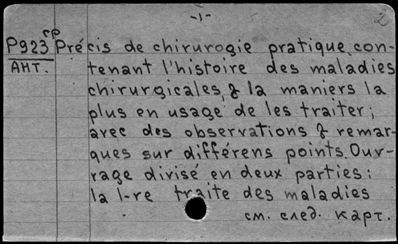 -1-
2
гр
P923 Précis de chirurogie pratique, con-
АНТ. tenant l'histoire des maladies
chirurgicales, & la maniers la
plus en usage de les traiter;
avec des observations & remar-
ques sur différens points. Ouv-
rage divisé en deux parties:
la 1-re traite des maladies
см. след. карт.